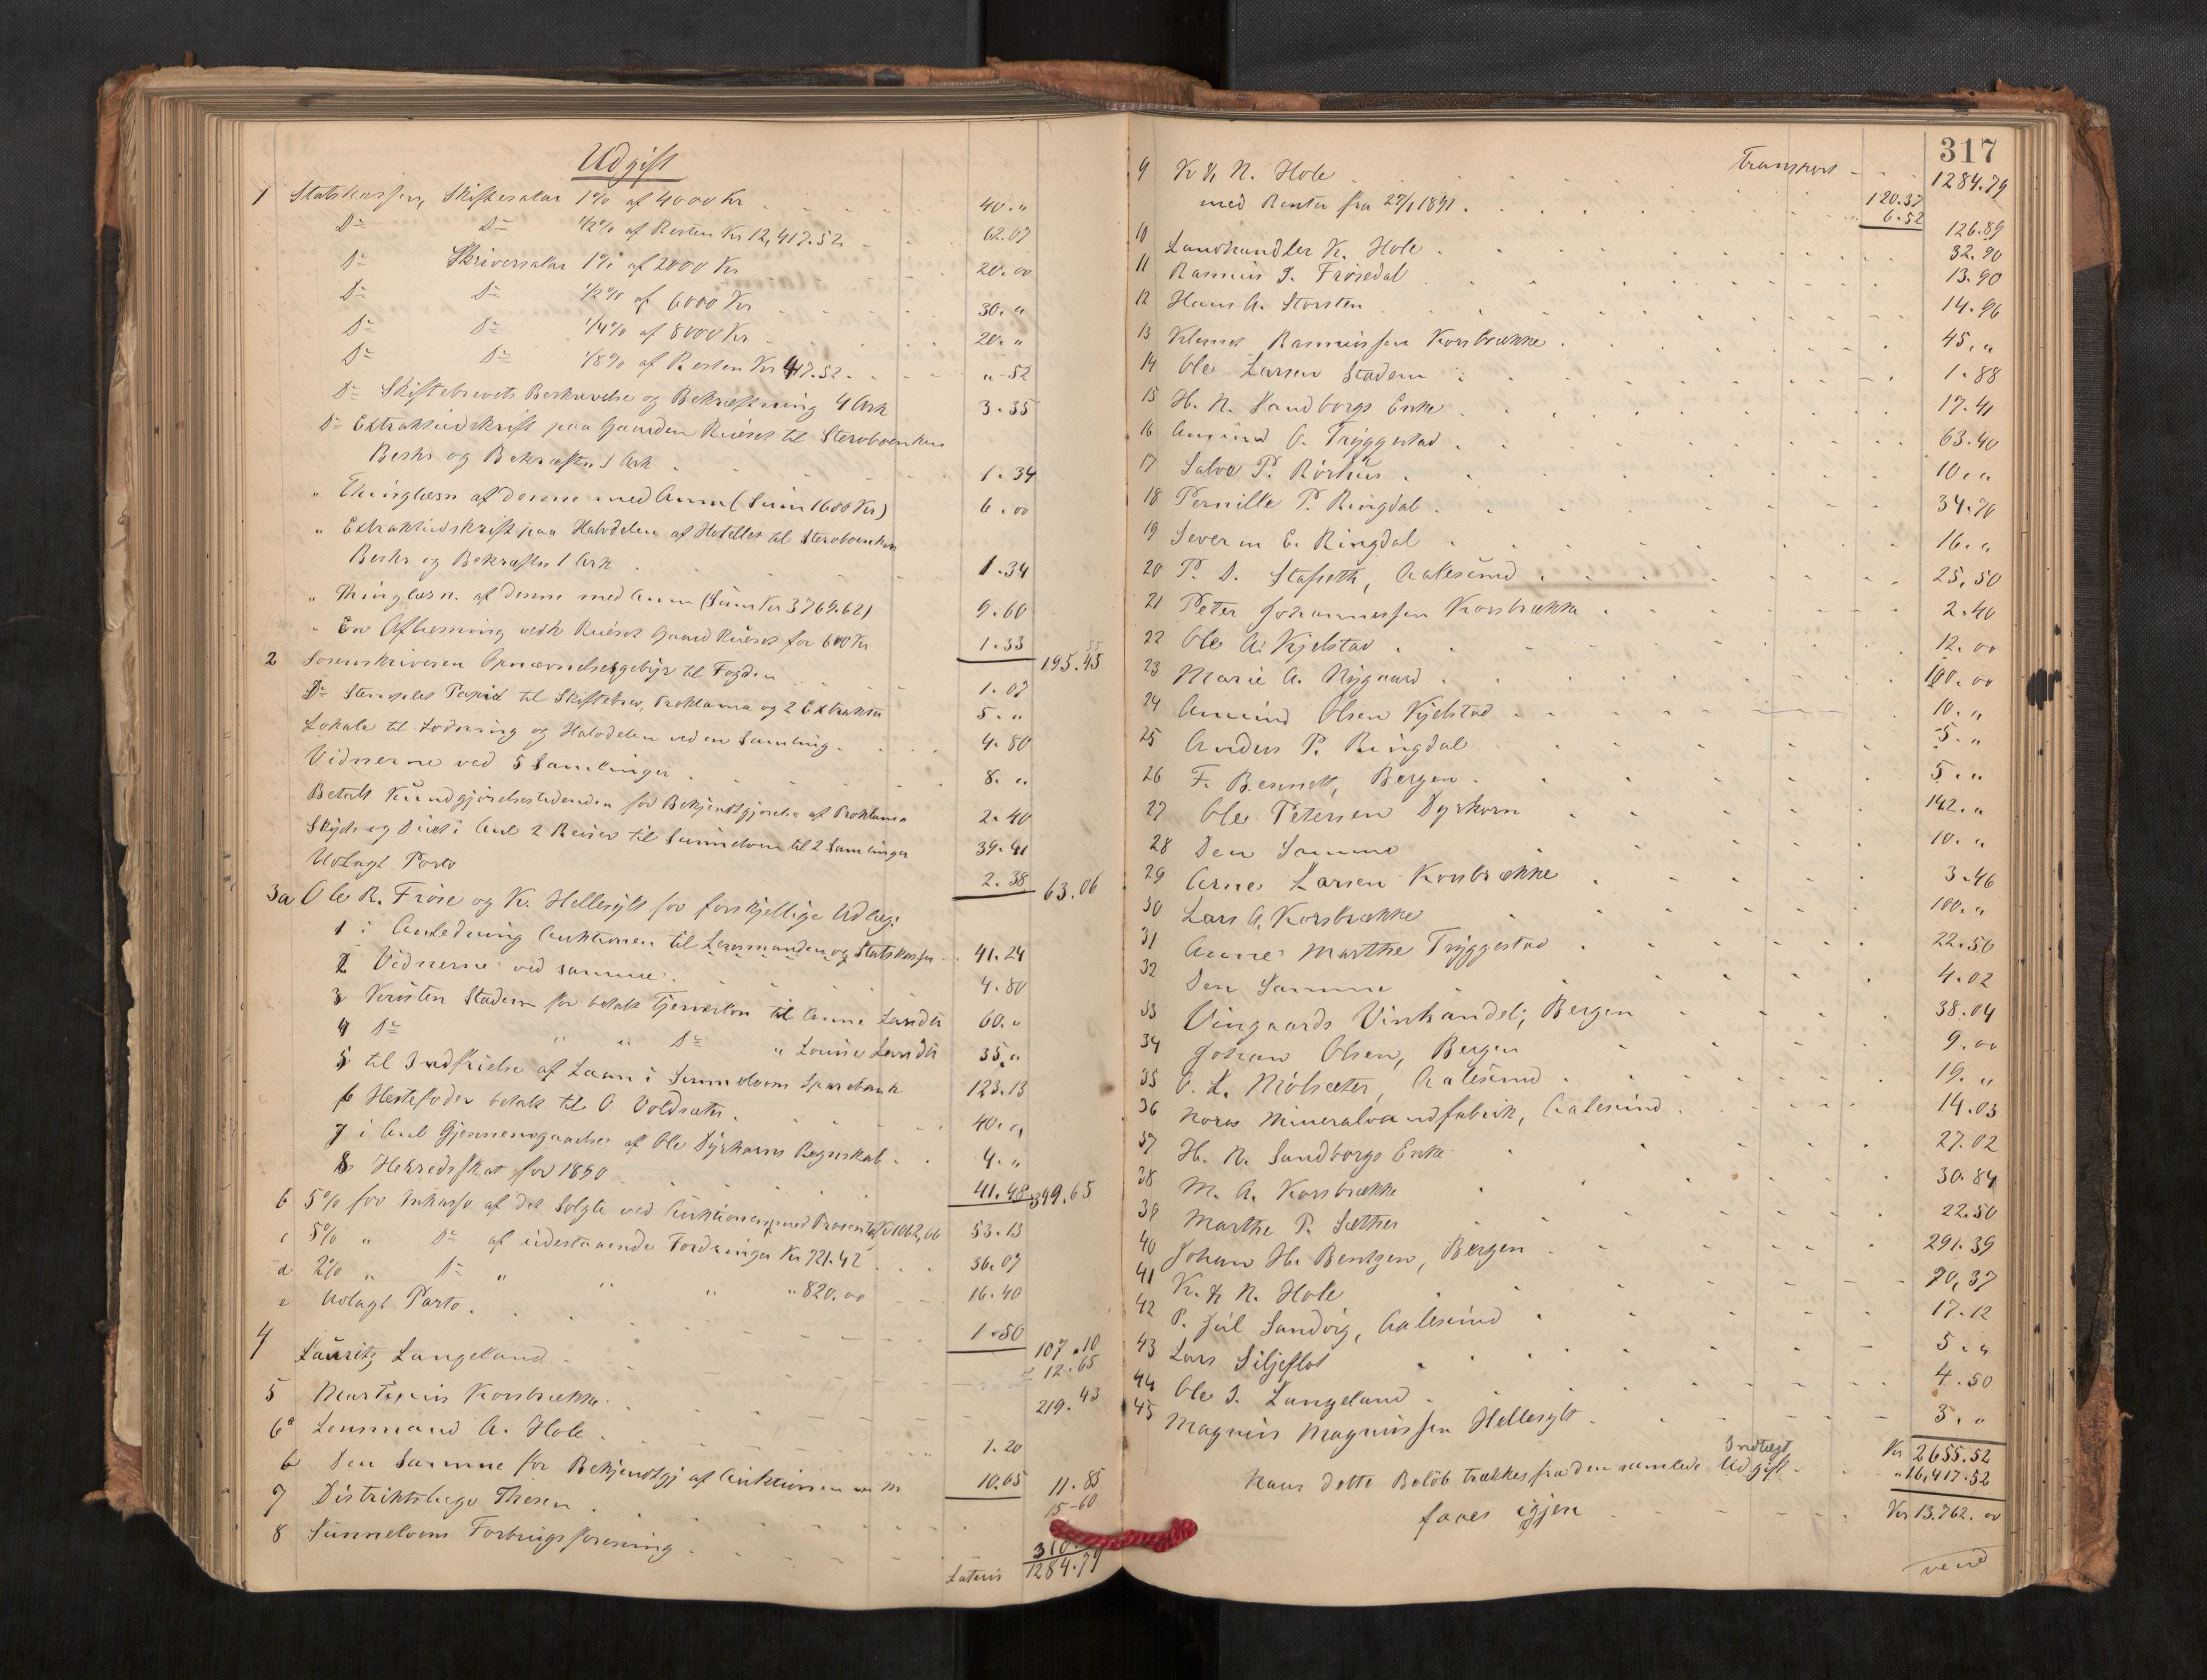 Udgift
1 Statskassen, Skiftesalær 1% af 4000 Kr 40."
Do Do 1/2% af Resten Kr 12,417.52 62.07
Do Skriversalær 1% af 2000 Kr 20.00
Do Do 1/2% af 6000 Kr 30."
Do Do 1/4% af 8000 Kr 20."
Do Do 1/8% af Resten Kr 417.52 "-52
Do Skiftebrevets Beskrivelse og Bekræftning 4 Ark 3.35
Do Extraktudskrift paa Gaarden til Stervboenken
Beskr og Bekræftn 1 Ark 1.34
" Thinglæsn af denne med Anm (Sum 1600 Kr) 6.00
" Extraktudskrift paa Halvdelen af Hotellet til Stervboenken
Beskr og Bekræftn 1 Ark 1.34
" Thinglæsn. af denne med Anm (Sum Kr 3769.62) 9.60
" En Aflysning vedk Gaard for 600 Kr 1.33 195.45 55
2 Sorenskriveren Opnævnelsesgebyr til Fogden 1.07
Do Stemplet Papir til Skiftebrev, Proklama og 2 Extrakter 5."
Lokale til Lodning og Halvdelen ved en Samling 4.80
Vidnerne ved 5 Samlinger 8."
Betalt Kundgjørelsestidenden for Bekjentgjørelse af Proklama 2.40
Skyds og Diæt i Anl 2 Reiser til Sunnelven til 2 Samlinger 39.41
Udlagt Porto 2.38 63.06
3a Ole R. Frøise og K. Hellesylt for forskjellige Udlæg:
1 i Anledning Auktionen til Lensmanden og Statskassen 41.24
2 Vidnerne ved samme. 4.80
3 Kristen Stadem for betalt Tjenerløn til Anne 60."
4 Do " " Do " Louise 35."
5 til Indfrielse af Laan i Sunnelvens Sparebank 123.13
6 Hestefoder betalt til O Voldsæter. 40."
7 i Anl Gjennemgaaelse af Ole Dyrkorns Regnskab 4."
8 Herredsskat for 1890 41.48 349.65
b 5% for Inkasso af det Solgte ved Auktionen med Procenter Kr 1062,66 53.13
c 5% " Do af udestaaende Fordringer Kr 721.42 36.07
d 2% " Do " " " " 820.00 16.40
e Udlagt Porto. 1.50 107.10
4 Lauritz Langeland 12.65
5 Martinus Korsbrække 219.43
6a Lensmand A. Hole 1.20
b Den Samme for Bekjendtgj af Auktionen m m 10.65 11.85
7 Distriktslæge Thesen 15-60
8 Sunnelvens Forbrugsforening 310.
Lateris 1284.79
317
Transport 1284.79
9 K & N. Hole 120.37
med Renter fra 27/1 1891 6.52 126.89
10 Landhandler K. Hole 32.90
11 Rasmus I. Frøisedal 13.90
12 Hans A. Storsten 14.96
13 Klemet Rasmussen Korsbrække 45,"
14 Ole Larsen Stadem 1.88
15 H. N. Sandborgs Enke 17.41
16 Amund O. Tryggestad 63.40
17 Salve P. Rørhus 10."
18 Pernille P. Ringdal 34.70
19 Severin E. Ringdal 16."
20 P. D. Stafseth, Aalesund 25,50
21 Peter Johannessen Korsbrække 2.40
22 Ole A. Kjelstad 12.00
23 Marie A. Nygaard 100.00
24 Amund Olsen Kjelstad 10."
25 Anders P. Ringdal 5."
26 F. Bennett, Bergen 5."
27 Ole Petersen Dyrkorn 142."
28 Den Samme 10."
29 Arne Larsen Korsbrække 3.46
30 Lars A. Korsbrække 100."
31 Anne Marthe Tryggestad 22.50
32 Den Samme 4.02
33 Vingaards Vinhandel, Bergen 38.04
34 Johan Olsen, Bergen 9.00
35 O. L. Mølsæter, Aalesund 19."
36 Nores Mineralvandfabrik, Aalesund 14.03
37 H. N. Sandborgs Enke 27.02
38 M. A. Korsbrække 30.84
39 Marthe P. Sæther 22.50
40 Johan H. Bentzen, Bergen 291.39
41 K. & N. Hole 70,37
42 P. Juel Sandvig, Aalesund 17.12
43 Lars Siljeflot 5."
44 Ole I. Langeland 4.50
45 Magnus Magnussen Hellesylt 3."
Kr 2655.52
Indtægt
Naar dette Beløb trækkes fra den samlede Udgift " 16,417.52
faaes igjen Kr 13.762.00
vend